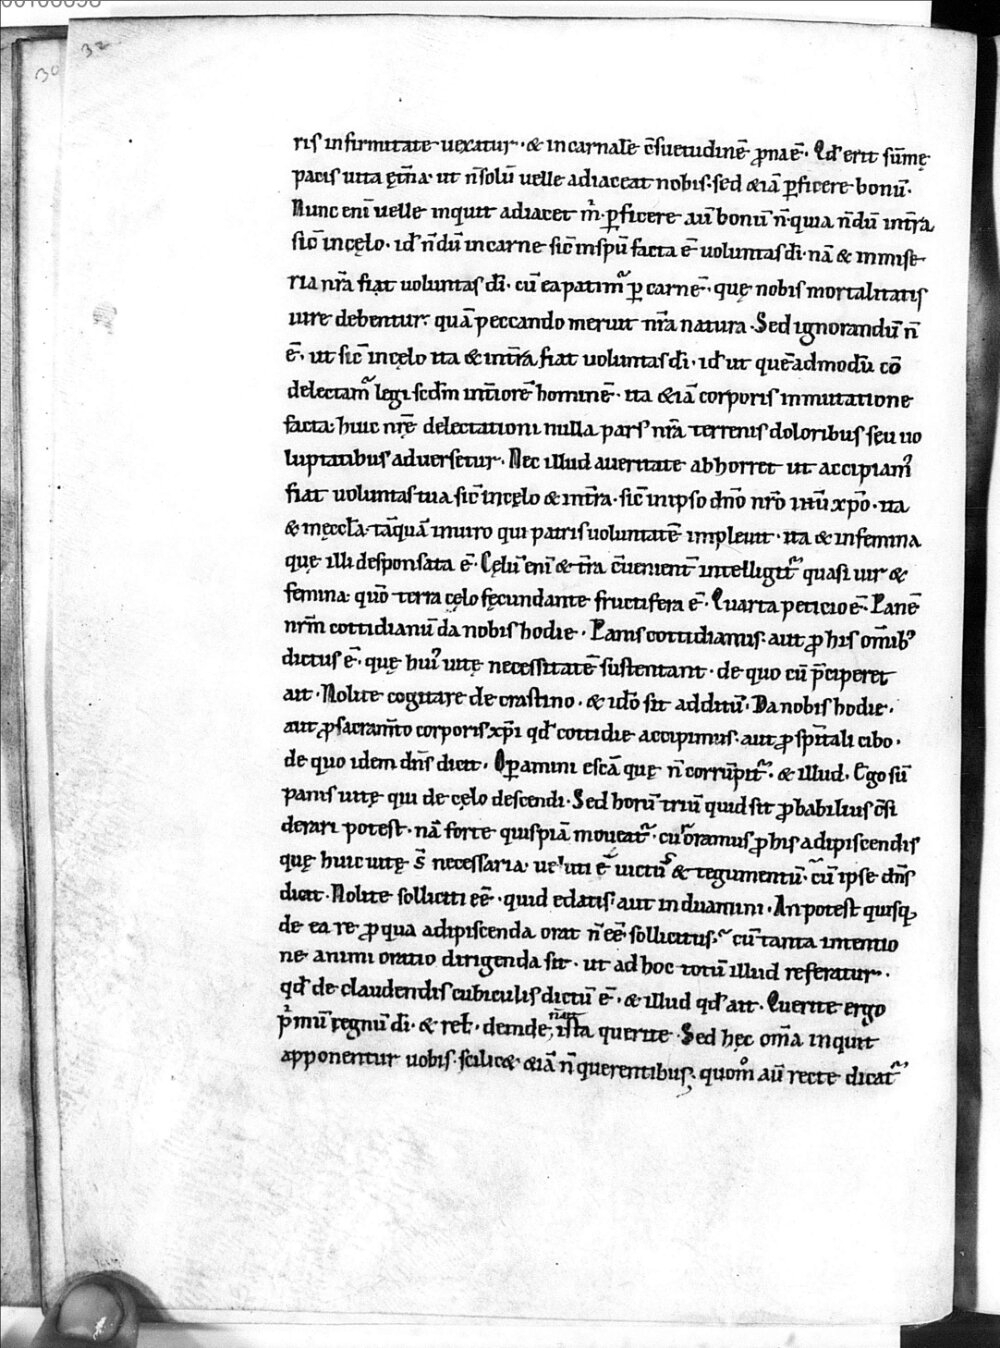 32
30
ris infirmitate uexatur · & in carnale c̄suetudinē ꝓna ē · Qd̄ erit sūmę
pacis uita ęt̄na · ut n̄ solū uelle adiaceat nobis · sed &iā ꝑficere bonū ·
Nunc eni uelle inquit adiacet m̄ · ꝑficere au bonū n̄ · quia n̄dū in t̄ra
sic̄ in cęlo · id n̄dū in carne sic̄ in sp̄u facta ē uoluntas dī · nā & in mise
ria nr̄a fiat uoluntas dī · cū ea patimr̄ ꝑ carnē · quę nobis mortalitatis
iure debentur · quā peccando meruit nr̄a natura · Sed ignorandū n̄
ē · ut sic̄ in cęlo ita & in t̄ra fiat uoluntas dī · id ut quēadmodū cō
delectamr̄ legi scdm̄ int̄iorē hominē · ita &iā corporis inmutatione
facta · huic nrę̄ delectationi nulla pars nr̄a terrenis doloribus seu uo
luptatibus aduersetur · Nec illud a ueritate abhorret ut accipiamꝰ
fiat uoluntas tua sic̄ in cęlo & in t̄ra · sic̄ in ipso dn̄o nr̄o ihū xp̄o · ita
& in eccl̄a · tāquā in uiro qui patris uoluntatē impleuit · ita & in femina
quę illi desponsata ē · Cęlū eni & t̄ra c̄uenient̄ intelligitr̄ quasi uir &
femina · quō terra cęlo fęcundante fructifera ē · Quarta peticio ē · Panē
nrm̄ cottidianū da nobis hodie · Panis cottidianus · aut ꝓ his om̄ibꝰ
dictus ē · quę huiꝰ uitę necessitatē sustentant · de quo cū p̄ciperet
ait · Nolite cogitare de crastino · & idō sit additū · Da nobis hodie ·
aut ꝓ sacram̄to corporis xp̄i qd̄ cottidie accipimus · aut ꝓ sp̄itali cibo ·
de quo idem dn̄s dicit · Oꝑamini escā quę n̄ corrūpitr̄ · & illud · Ego sū
panis uitę qui de cęlo descendi · Sed horū triū quid sit ꝓbabilius c̄si
derari potest · nā forte quispiā moueatr̄ · cur oramus ꝓ his adipiscendis
quę huic uitę s̄ necessaria · uel uti ē uictus & tegumentū · cū ipse dn̄s
dicat · Nolite solliciti eē · quid edatis aut induamini · An potest quisq
de ea re ꝓ qua adipiscenda orat n̄ eē sollicitus · cū tanta intentio
ne animi oratio dirigenda sit · ut ad hoc totū illud referatur ·
qd̄ de claudendis cubiculis dictū ē · & illud qd̄ ait · Querite ergo
p̄mū regnū dī · & rel · deinde ista querite · Sed hęc om̄a inquit
apponentur uobis · scilic& &iā n̄ querentibus · quom̊ aū recte dicatr̄